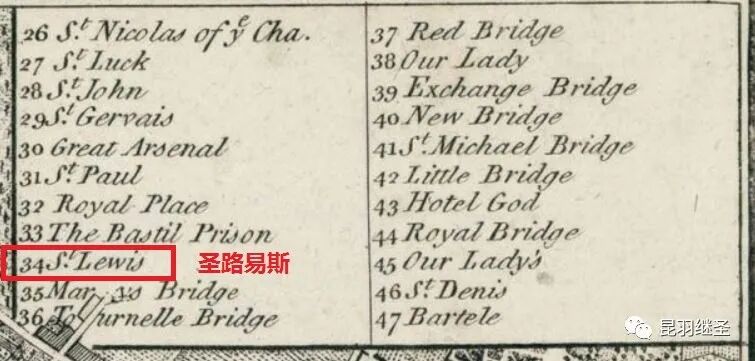 26 St. Nicolas of ye Cha.
27 St. Luck
28 St. John
29 St. Gervais
30 Great Arsenal
31 St. Paul
32 Royal Place
33 The Bastil Prison
34 St. Lewis
圣路易斯
35 Mar ys Bridge
36 T urnelle Bridge
37 Red Bridge
38 Our Lady
39 Exchange Bridge
40 New Bridge
41 St. Michael Bridge
42 Little Bridge
43 Hotel God
44 Royal Bridge
45 Our Lady's
46 St. Denis
47 Bartele
昆羽继圣